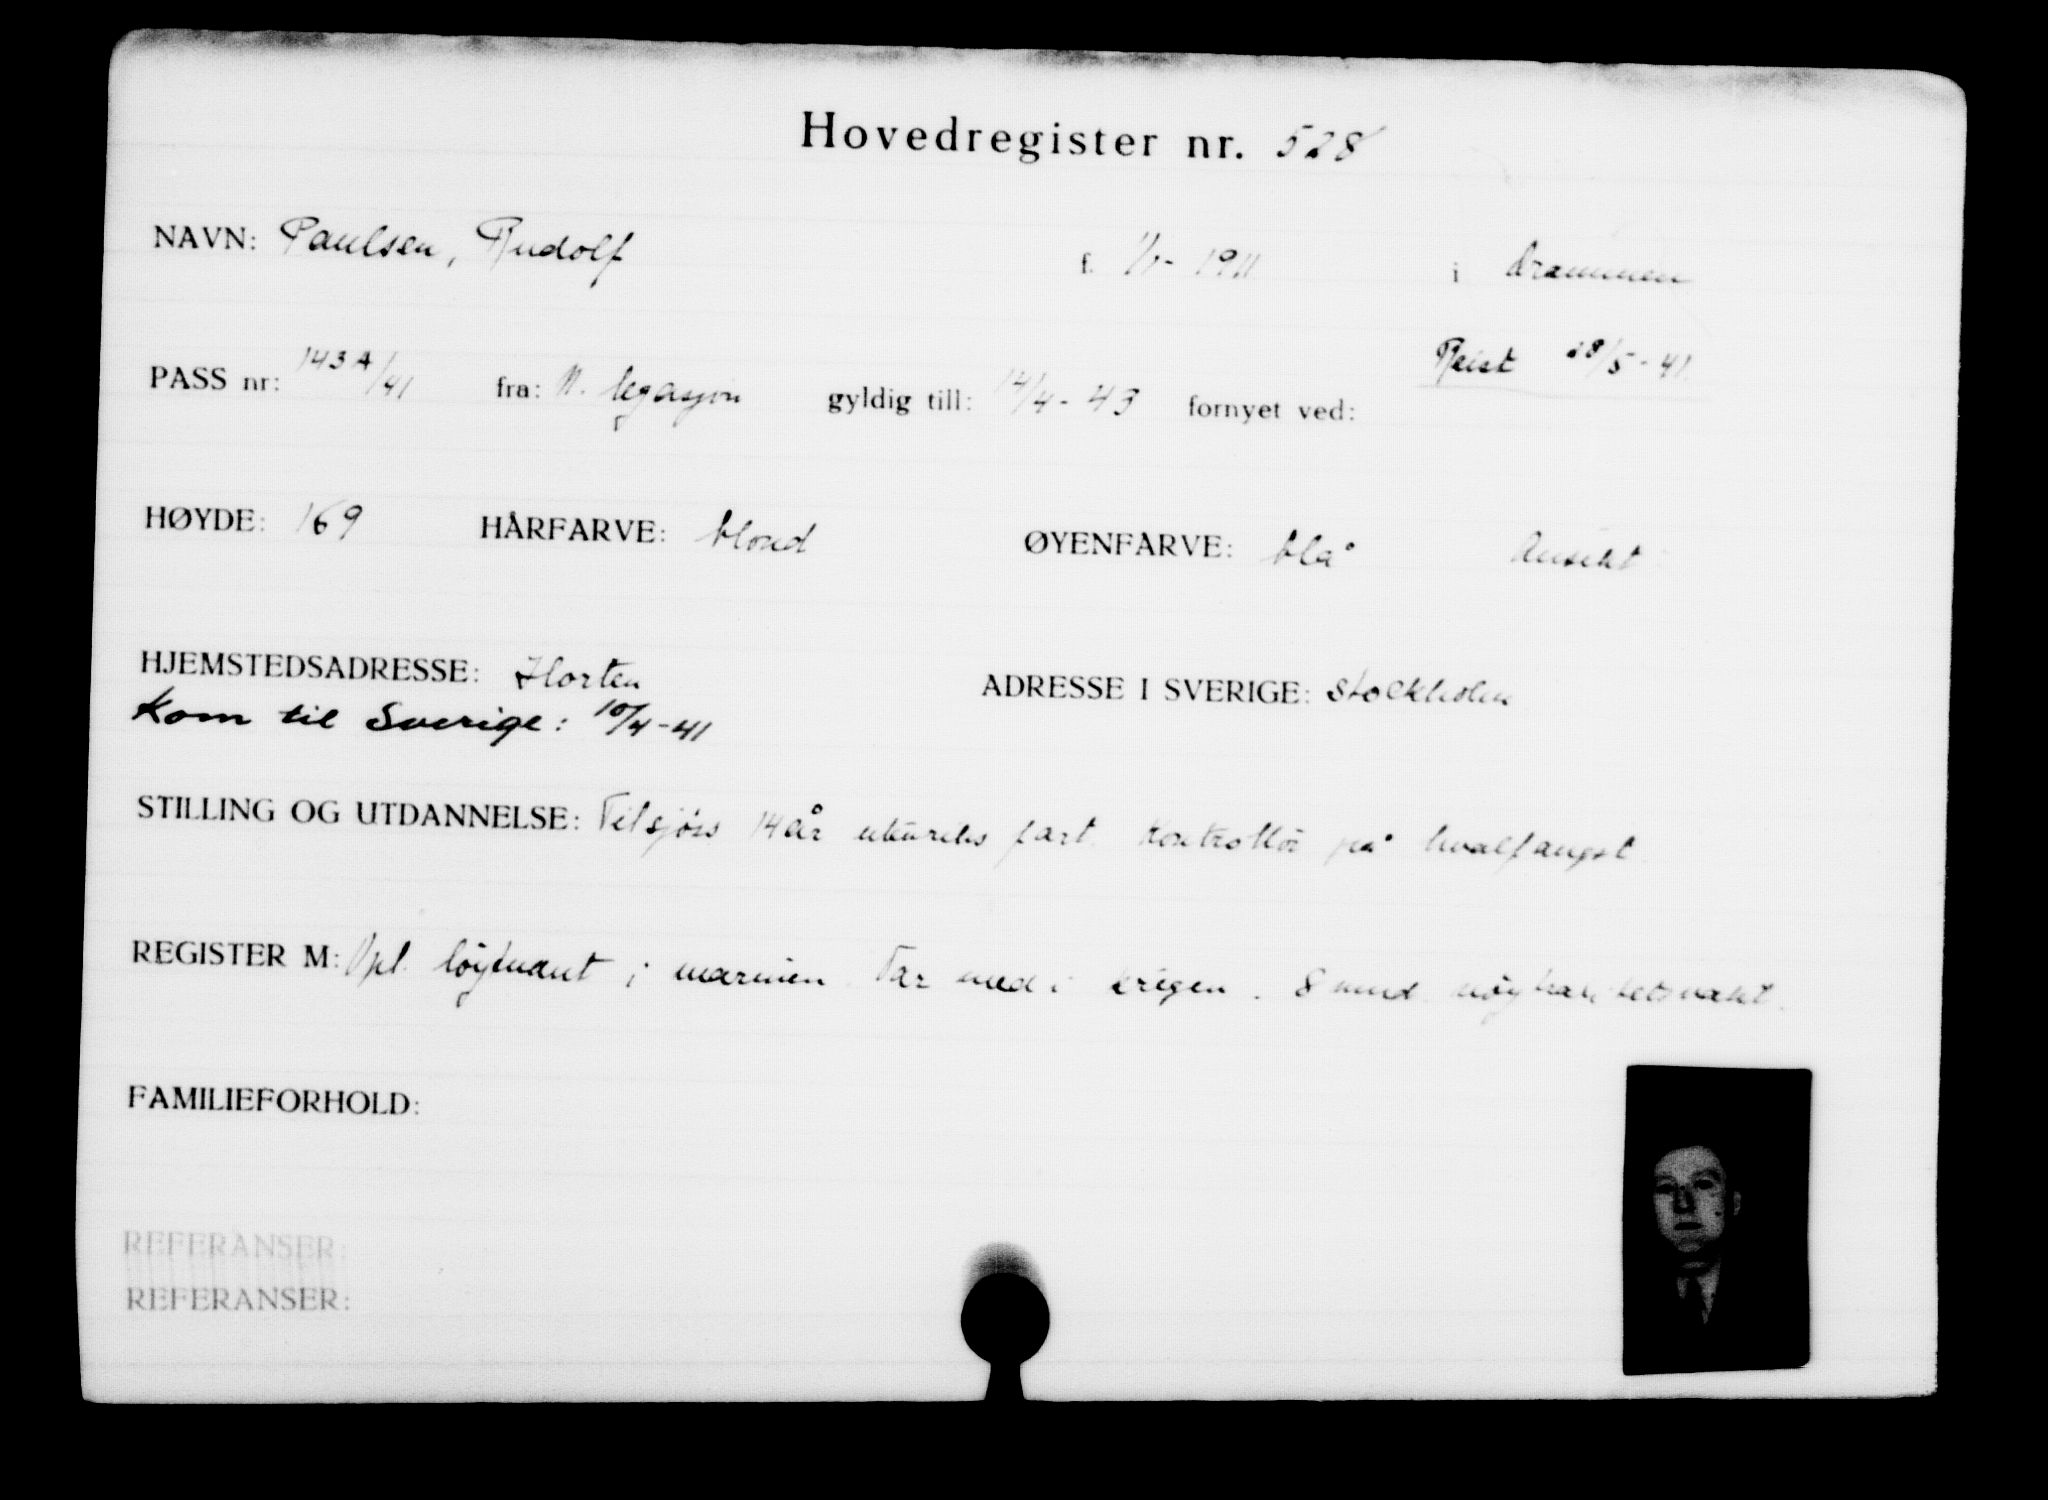 Hovedregister nr. 528
NAVN: Paulsen, Rudolf f. 1/1- 1911 i Drammen
Reist 28/5-41.
PASS nr: 143A/41 fra: N. legasjon gyldig till: 14/4-43 fornyet ved:
HØYDE: 169 HÅRFARVE: blond ØYENFARVE: blå Ansikt
HJEMSTEDSADRESSE: Horten ADRESSE I SVERIGE: Stockholm
Kom til Sverige: 10/4-41
STILLING OG UTDANNELSE: Tilsjøss 14 år utenriks fart. Kontrollör på hvalfangst.
REGISTER M: löytnant i marinen. Var med i krigen. 8 mnd. nöytralitetsvakt.
FAMILIEFORHOLD:
REFERANSER:
REFERANSER: